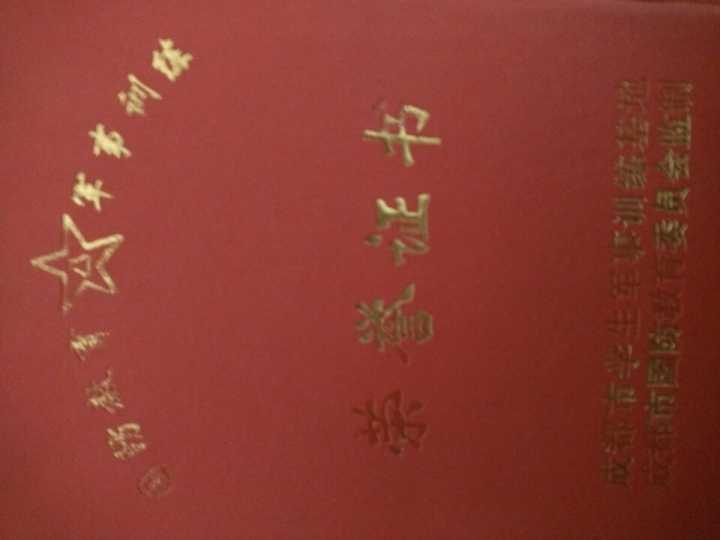 国防教育 军事训练
荣誉证书
成都市学生军事训练基地
成都市国防教育委员会监制